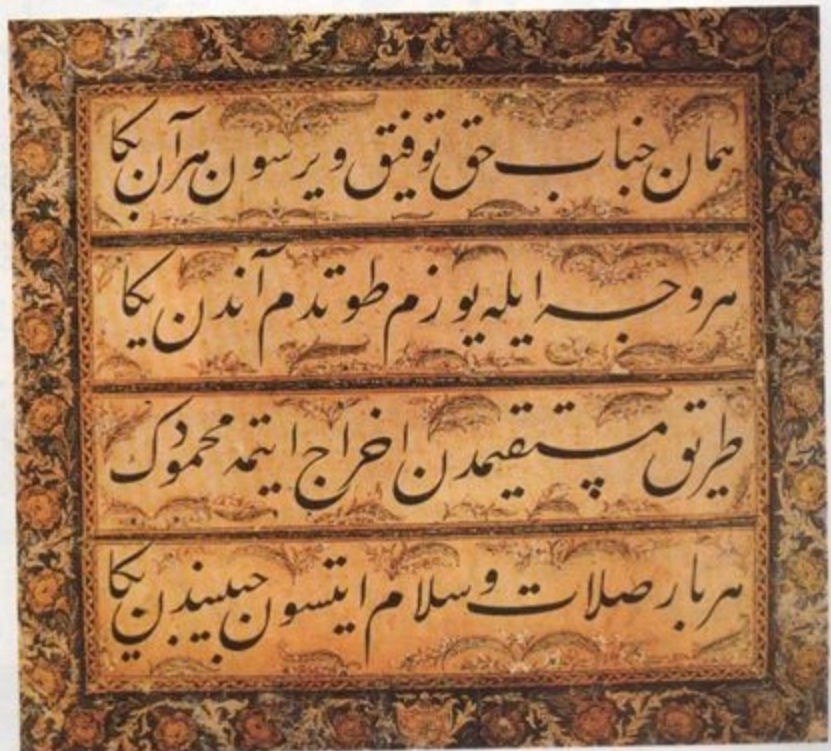 همان جناب حق توفیق ویرسون هر آن بكا
هر وجه ایله یوزم طوتدم آندن یكا
طریق مستقیمدن اخراج ایتمه محمودك
هربار صلات و سلام ایتسون حبیبندن یكا